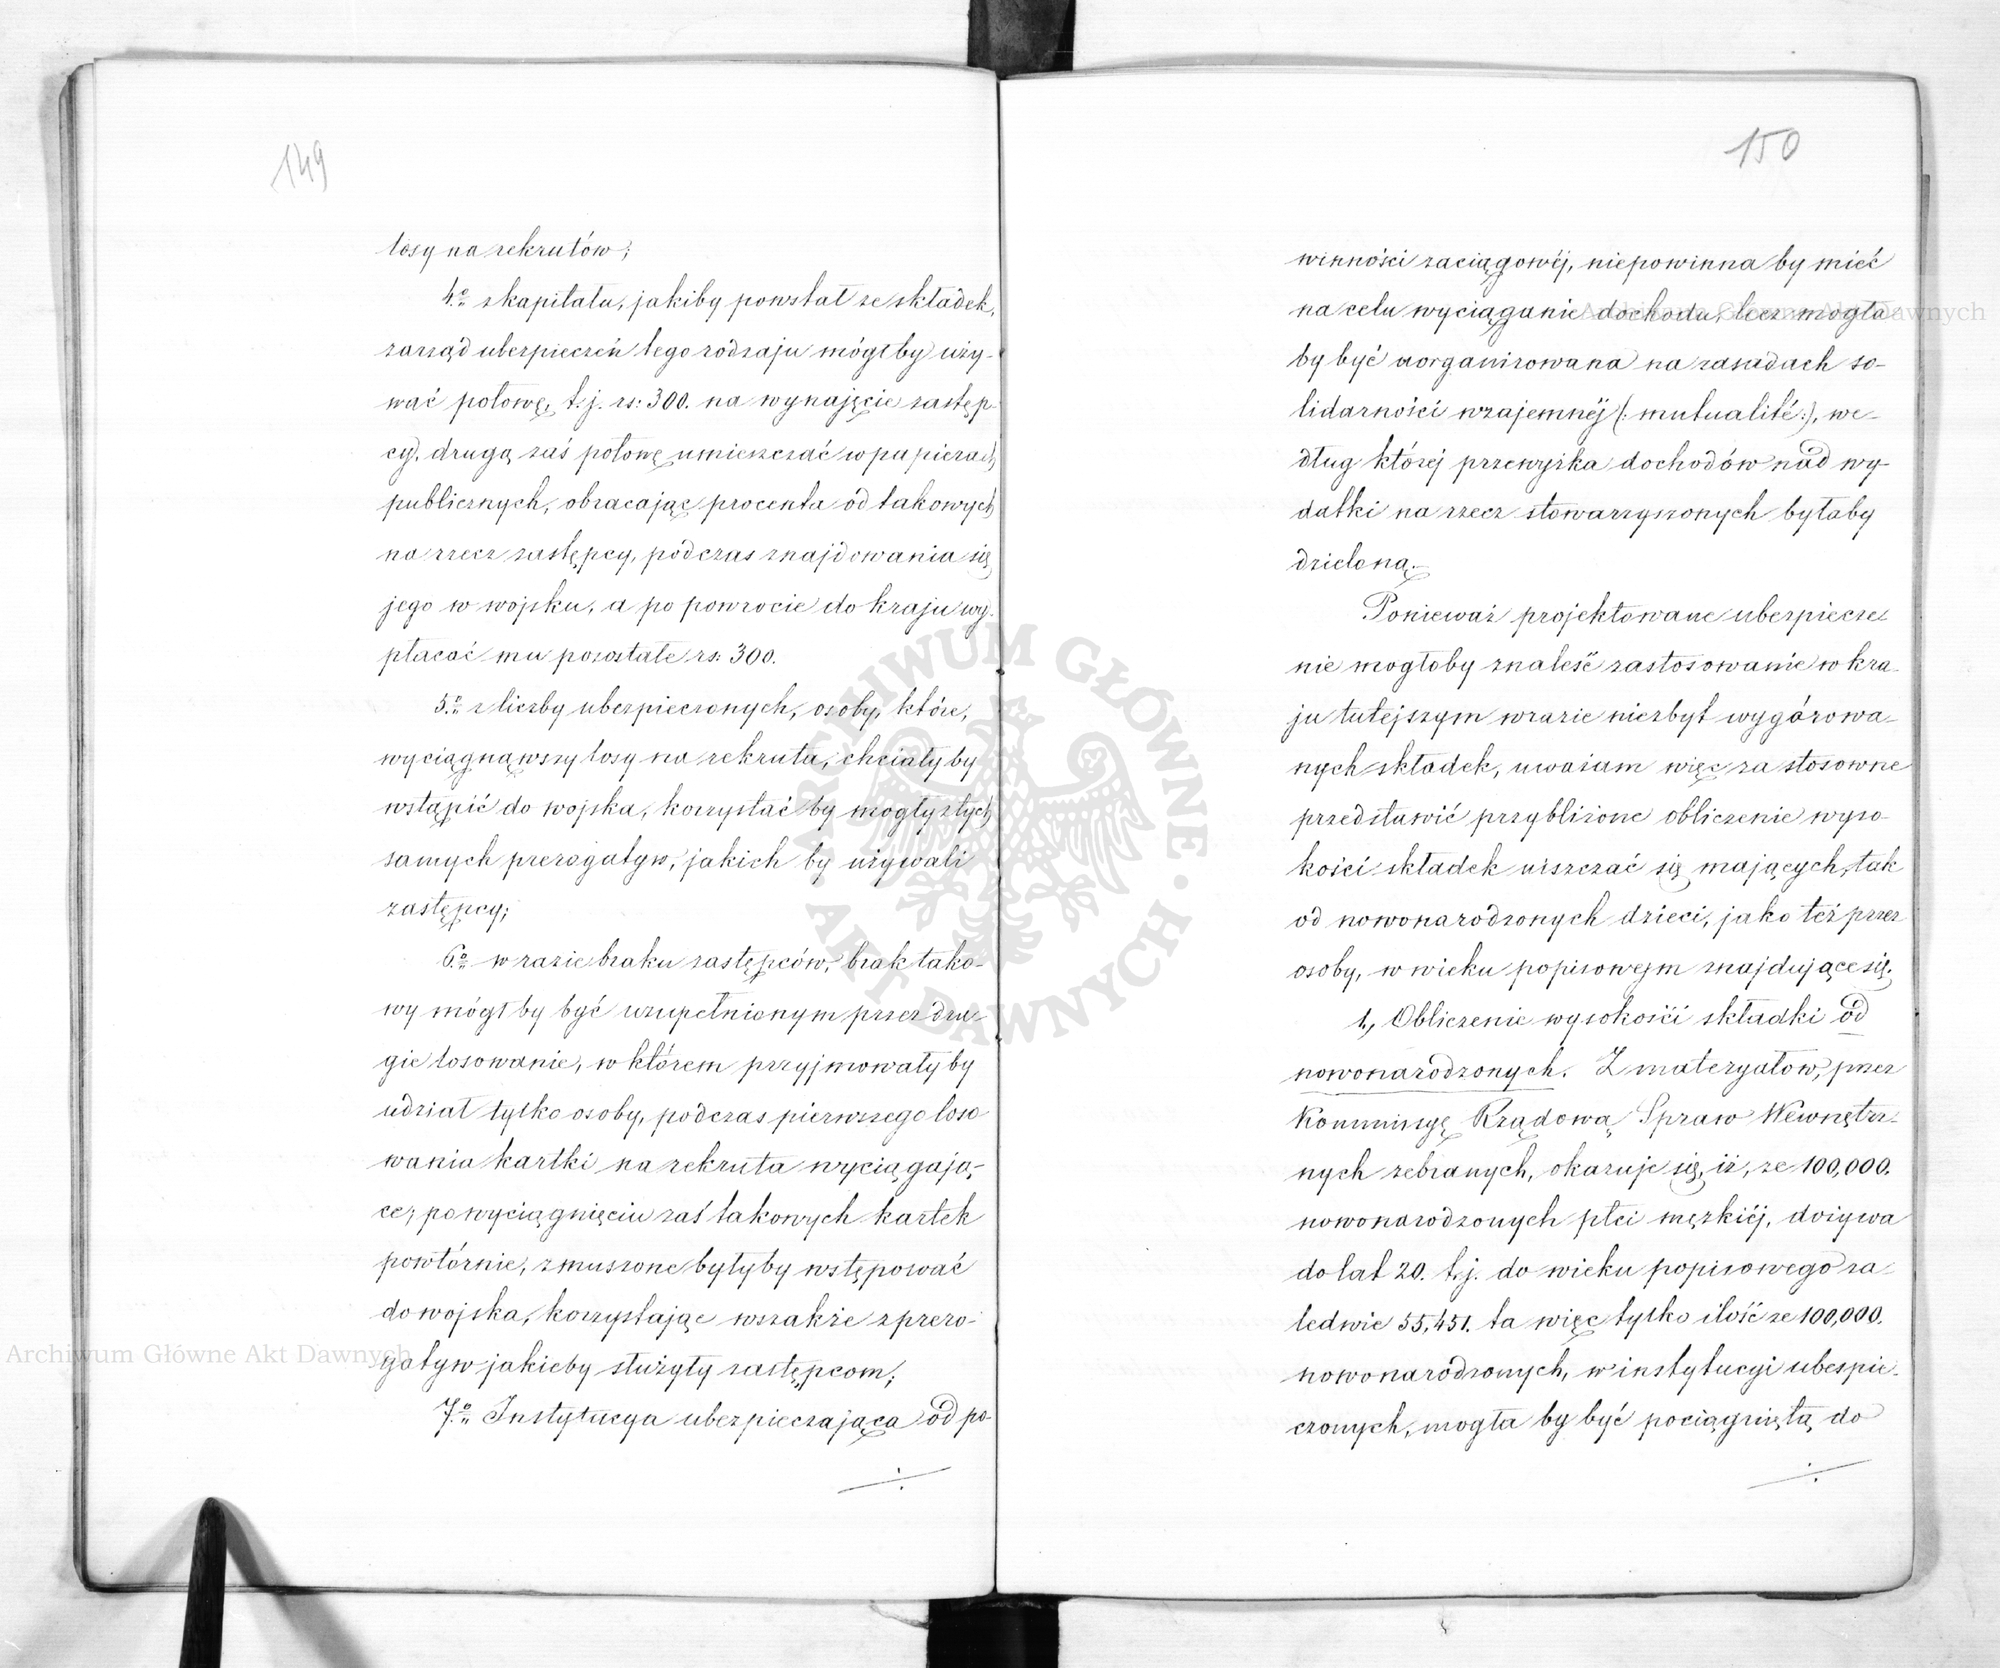 149
losy na rekrutów;
4.o z kapitału, jakiby powstał ze składek,
zarząd ubezpieczeń tego rodzaju mógł by uży-
wać połowę, t.j. rs: 300. na wynajęcie zastęp-
cy, drugą zaś połowę umieszczać w papierach
publicznych, obracając procenta od takowych
na rzecz zastępcy, podczas znajdowania się
jego w wojsku, a po powrocie do kraju wy-
płacać mu pozostałe rs: 300.
5.o z liczby ubezpieczonych, osoby, które,
wyciągnąwszy losy na rekruta, chciały by
wstąpić do wojska, korzystać by mogły z tych
samych prerogatyw, jakich by używali
zastępcy;
6.o w razie braku zastępców, brak tako-
wy mógł by być uzupełnionym przez dru-
gie losowanie, w którem przyjmowały by
udział tylko osoby, podczas pierwszego loso
wania kartki na rekruta wyciągają-
ce, po wyciągnięciu zaś takowych kartek
powtórnie, zmuszone były by wstępować
do wojska, korzystając wszakże z prero-
gatyw jakieby służyły zastępcom;
7.o Instytucya ubezpieczająca od po-
150
winności zaciągowéj, niepowinna by mieć
na celu wyciąganie dochodu, lecz mogła
by być uorganizowana na zasadach so-
lidarności wzajemnéj (: mutualité :), we-
dług której przewyżka dochodów nad wy-
datki na rzecz stowarzyszonych byłaby
dzieloną.
Ponieważ projektowane ubezpiecze
nie mogłoby znaleść zastosowanie w kra-
ju tutejszym w razie niezbyt wygórowa-
nych składek, uważam więc za stosowne
przedstawić przybliżone obliczenie wyso-
kości składek uiszczać się mających, tak
od nowonarodzonych dzieci, jako też przez
osoby, w wieku popisowejm znajdujące się.
1., Obliczenie wysokości składki od
nowonarodzonych. Z materyałów, przez
Kommissyę Rządową Spraw Wewnętrz-
nych zebranych, okazuje się, iż, ze 100,000.
nowonarodzonych płci męzkiéj, dożywa
do lat 20. t.j. do wieku popisowego za-
ledwie 55,451. ta więc tylko ilość ze 100,000.
nowonarodzonych, w instytucyi ubezpie-
czonych, mogła by być pociągniętą do
Archiwum Główne Akt Dawnych
Archiwum Główne Akt Dawnych
ARCHIWUM GŁÓWNE AKT DAWNYCH